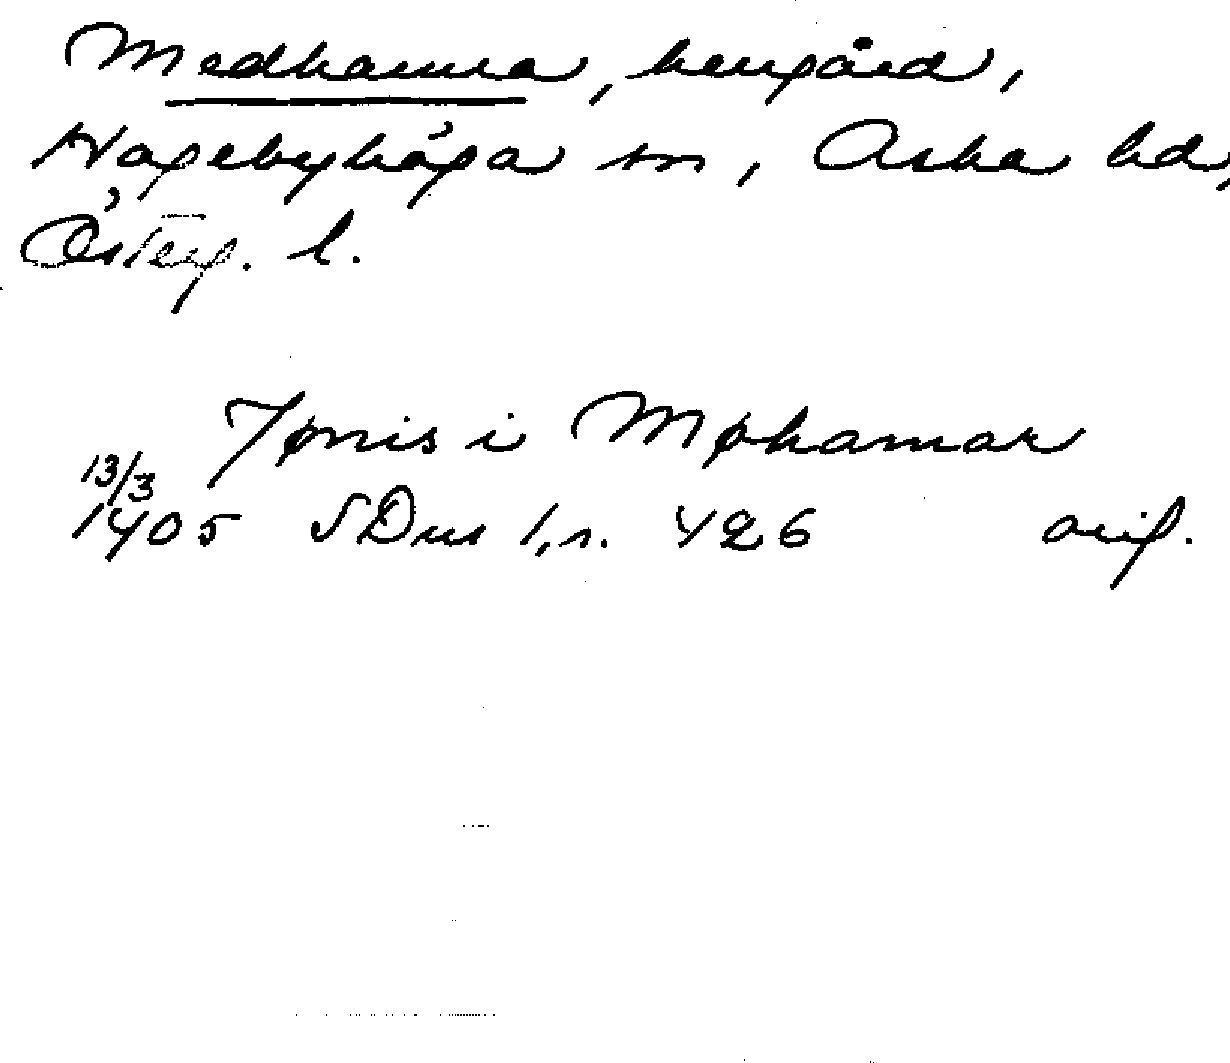 Medhamra, herrgård,
Hagebyhöga sn, Aska hd,
Österg. l.
Jønis i Møhamar
13/3
1405 SDns 1, s. 426 orig.